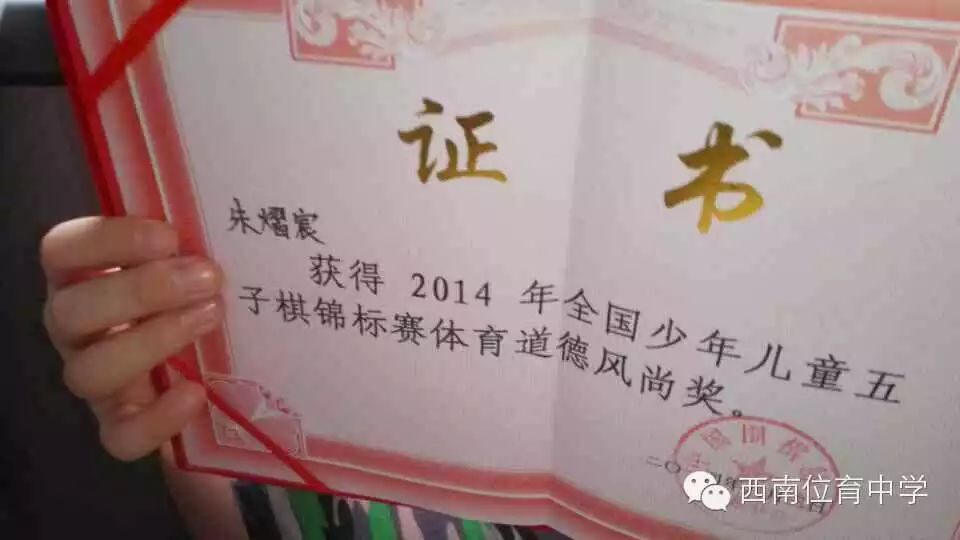 证书
朱熠宸
获得 2014 年全国少年儿童五
子棋锦标赛体育道德风尚奖。
西南位育中学